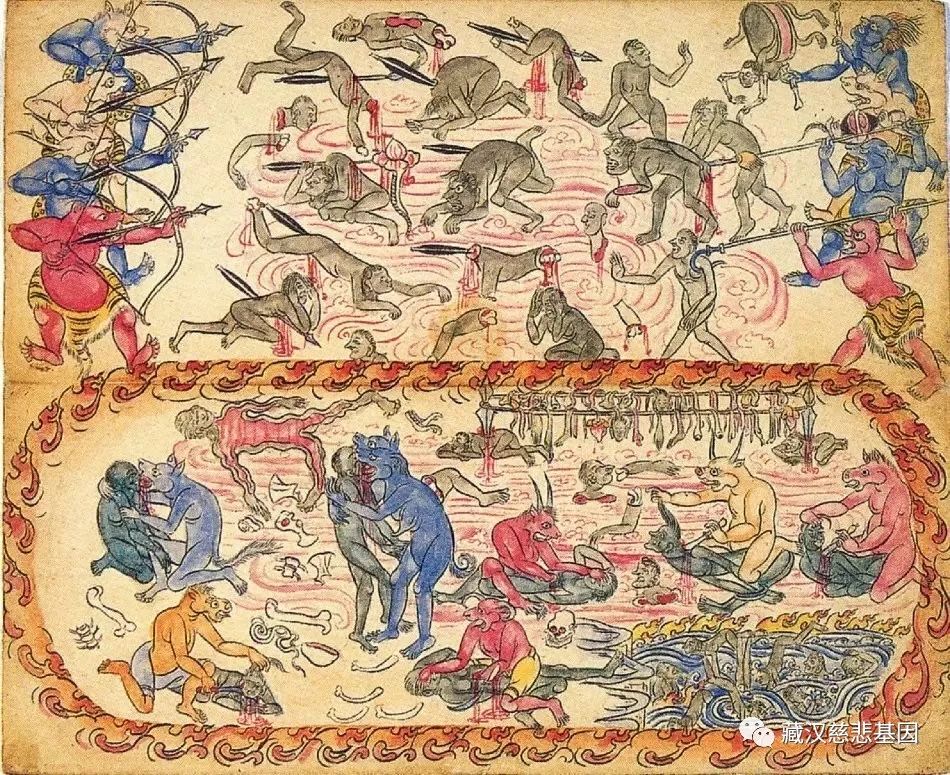 藏汉慈悲基因